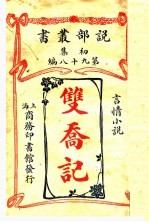 說部叢書
初集
第九十八編
言情小說
雙喬記
上海
商務印書館發行